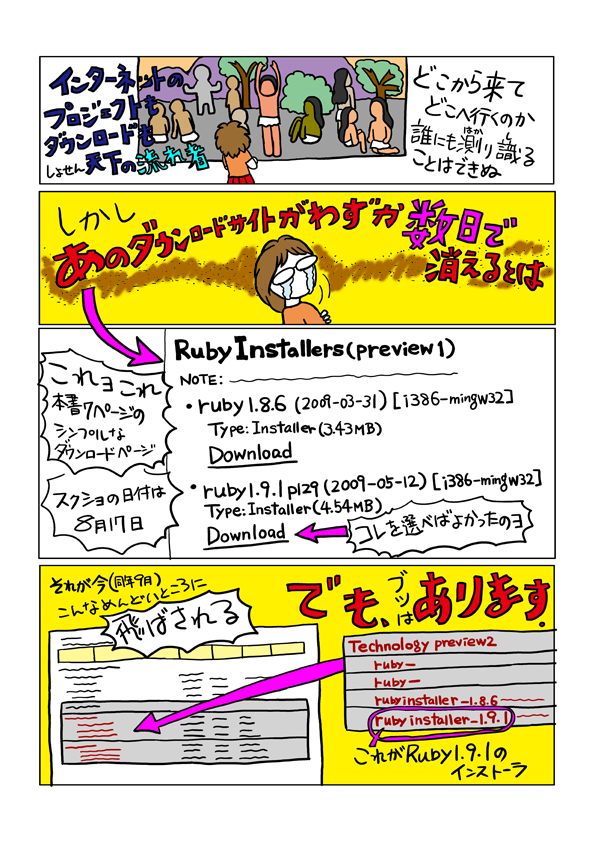 インターネットの
プロジェクトも
ダウンロードも
しょせん天下の流れ者
どこから来て
どこへ行くのか
誰にも測り識る
はか し
ことはできぬ
しかし
あのダウンロードサイトがわずか数日で
消えるとは
これョこれ
本書7ページの
シンプルな
ダウンロードページ
スクショの日付は
8月17日
Ruby Installers(preview1)
NOTE:
・ruby1.8.6 (2009-03-31) [i386-mingw32]
Type: Installer (3.43MB)
Download
・ruby1.9.1 p129 (2009-05-12) [i386-mingw32]
Type: Installer (4.54MB)
Download
コレを選べばよかったのョ
それが今(同年9月)
こんなめんどいところに
飛ばされる
でも、ブツはあります.
Technology preview2
ruby–
ruby–
rubyinstaller_1.8.6
rubyinstaller_1.9.1
これがRuby1.9.1の
インストーラ